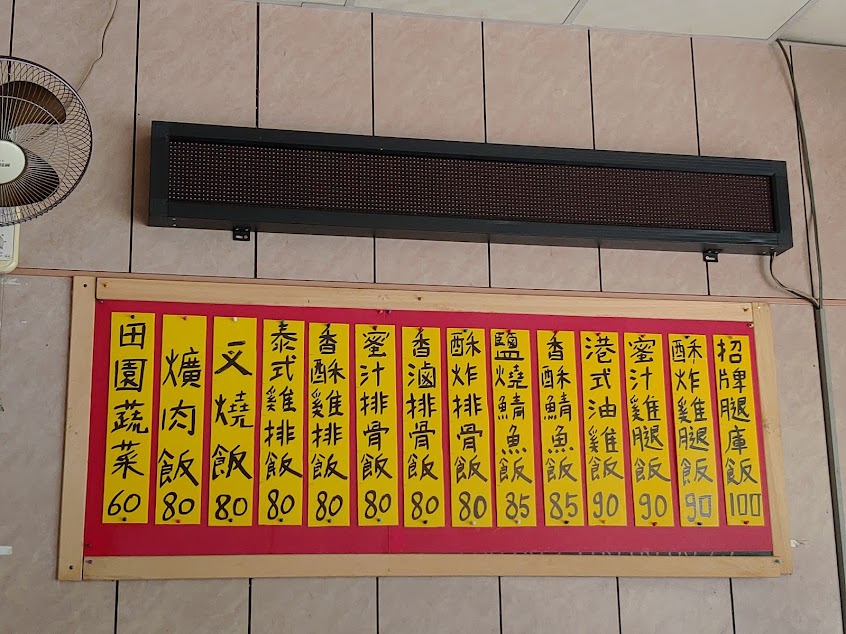 招牌腿庫飯 100
酥炸雞腿飯 90
蜜汁雞腿飯 90
港式油雞飯 90
香酥鯖魚飯 85
鹽燒鯖魚飯 85
酥炸排骨飯 80
香滷排骨飯 80
蜜汁排骨飯 80
香酥雞排飯 80
泰式雞排飯 80
叉燒飯 80
爌肉飯 80
田園蔬菜 60